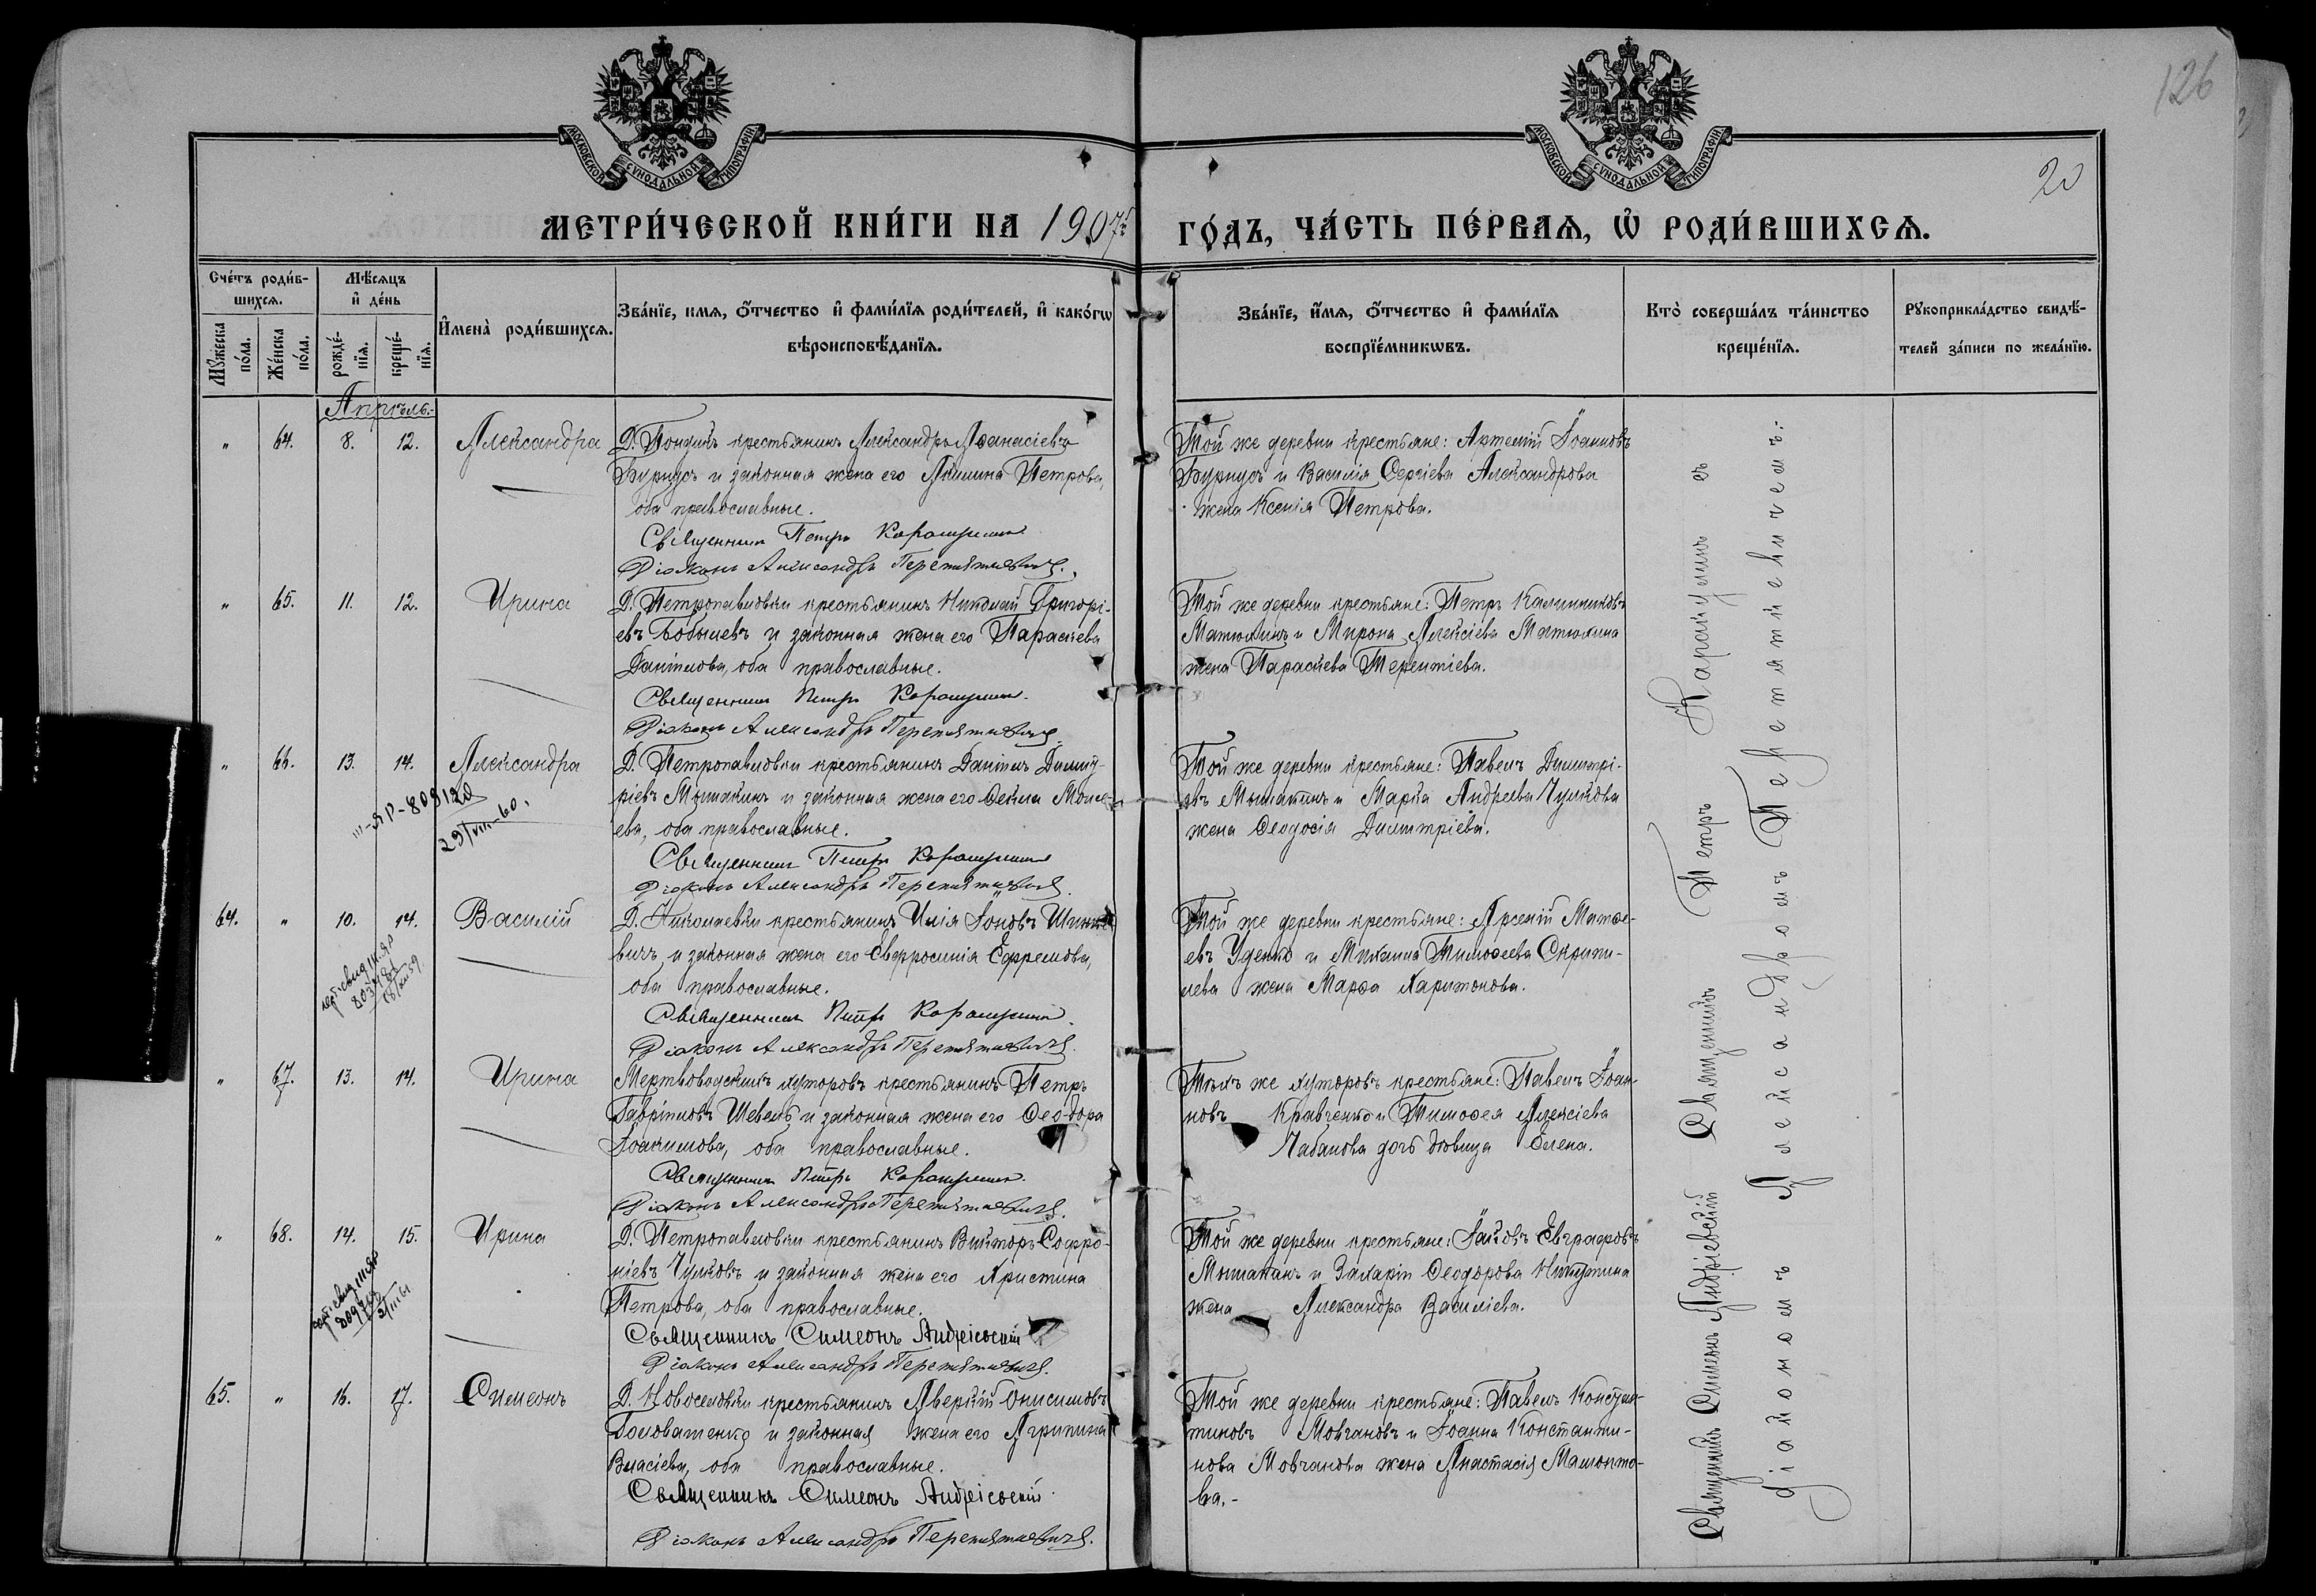 126
20
МОСКОВСКОЙ СѴНОДАЛЬНОЙ ТИПОГРАФІИ
МОСКОВСКОЙ СѴНОДАЛЬНОЙ ТИПОГРАФІИ
МЕТРИ́ЧЕСКОЙ КНИ́ГИ НА 1907й
ГО́ДЪ, ЧА́СТЬ ПЕ́РВАѦ, Ѡ҆ РОДИ́ВШИХСѦ.
Сче́тъ роди́в-
шихсѧ.
Мꙋ́жеска по́ла.
Же́нска по́ла.
Мѣ́сѧцъ
и҆ де́нь
рожде́-
нїѧ.
креще́-
нїѧ.
И҆мена̀ роди́вшихсѧ.
Зва́нїе, имѧ, ѻ҆́тчество и҆ фами́лїѧ роди́телей, и҆ како́гѡ
вѣроисповѣ́данїѧ.
Зва́нїе, и҆́мѧ, ѻ҆́тчество и҆ фами́лїѧ
воспрїе́мникѡвъ.
Кто̀ соверша́лъ та́инство
креще́нїѧ.
Рꙋкоприкла́дство свидѣ́-
телей за́писи по жела́нїю.
Апрѣль.-
" 64. 8. 12. Александра
Д. крестьянинъ Александръ Аѳанасіевъ
Бурнусъ и законная жена его Акилина Петрова,
оба православные.
Священникъ Петръ Каракулинъ
Діаконъ Александръ Перетяткевичъ.
Той же деревни крестьяне: Артемій Іоанновъ
Бурнусъ и Василія Сергіева Александрова
жена Ксенія Петрова.
" 65. 11. 12. Ирина
Д. Петропавловки крестьянинъ Николай Григорі-
евъ Бобылевъ и законная жена его Параскева
Даніилова, оба православные.
Священникъ Петръ Каракулинъ.
Діаконъ Александръ Перетяткевичъ.
Той же деревни крестьяне: Петръ Калинниковъ
Матюхинъ и Мирона Алексіева Матюхина
жена Параскева Терентіева.
" 66. 13. 14. Александра
III-ЯР-809120
29/VIII-60.
Д. Петропавловки крестьянинъ Даніилъ Димит-
ріевъ Мошакинъ и законная жена его Ѳекла Моисе-
ева, оба православные.
Священникъ Петръ Каракулинъ
Діаконъ Александръ Перетяткевичъ.
Той же деревни крестьяне: Павелъ Димитрі-
евъ Мошакинъ и Марка Андреева Чулкова
жена Ѳеодосія Димитріева.
64. " 10. 14. Василій
Д. Николаевки крестьянинъ Илія Іоновъ Шинке-
вичъ и законная жена его Евфросинія Ефремова,
оба православные.
Священникъ Петръ Каракулинъ.
Діаконъ Александръ Перетяткевичъ.
Той же деревни крестьяне: Арсеній Матѳе-
евъ Уденко и Михаила Тимоѳеева Скрипи-
лева жена Марѳа Харитонова.
" 67. 13. 14. Ирина
Мертвоводскихъ хуторовъ крестьянинъ Петръ
Гавріиловъ Шевель и законная жена его Ѳеодора
Іоакимова, оба православные.
Священникъ Петръ Каракулинъ.
Діаконъ Александръ Перетяткевичъ.
Тѣхъ же хуторовъ крестьяне: Павелъ Іоан-
новъ Кравченко и Тимоѳея Алексіева
Чабанова дочь дѣвица Елена.
" 68. 14. 15. Ирина
Д. Петропавловки крестьянинъ Викторъ Софро-
ніевъ Чулковъ и законная жена его Христина
Петрова, оба православные.
Священникъ Симеонъ Андріевскій
Діаконъ Александръ Перетяткевичъ.
Той же деревни крестьяне: Іаковъ Евграфовъ
Мошакинъ и Захаріи Ѳеодорова Никутина
жена Александра Василіева.
65. " 16. 17. Симеонъ
Д. Новоселовки крестьянинъ Аверкій Онисимовъ
Головатенко и законная жена его Агрипина
Власіева, оба православные.
Священникъ Симеонъ Андріевскій.
Діаконъ Александръ Перетяткевичъ.
Той же деревни крестьяне: Павелъ Констан-
тиновъ Мовчановъ и Іоанна Константи-
нова Мовчанова жена Анастасія Мамонто-
ва.-
Священникъ Симеонъ Андріевскій Священникъ Петръ Каракулинъ съ
діакономъ Александромъ Перетяткевичемъ: